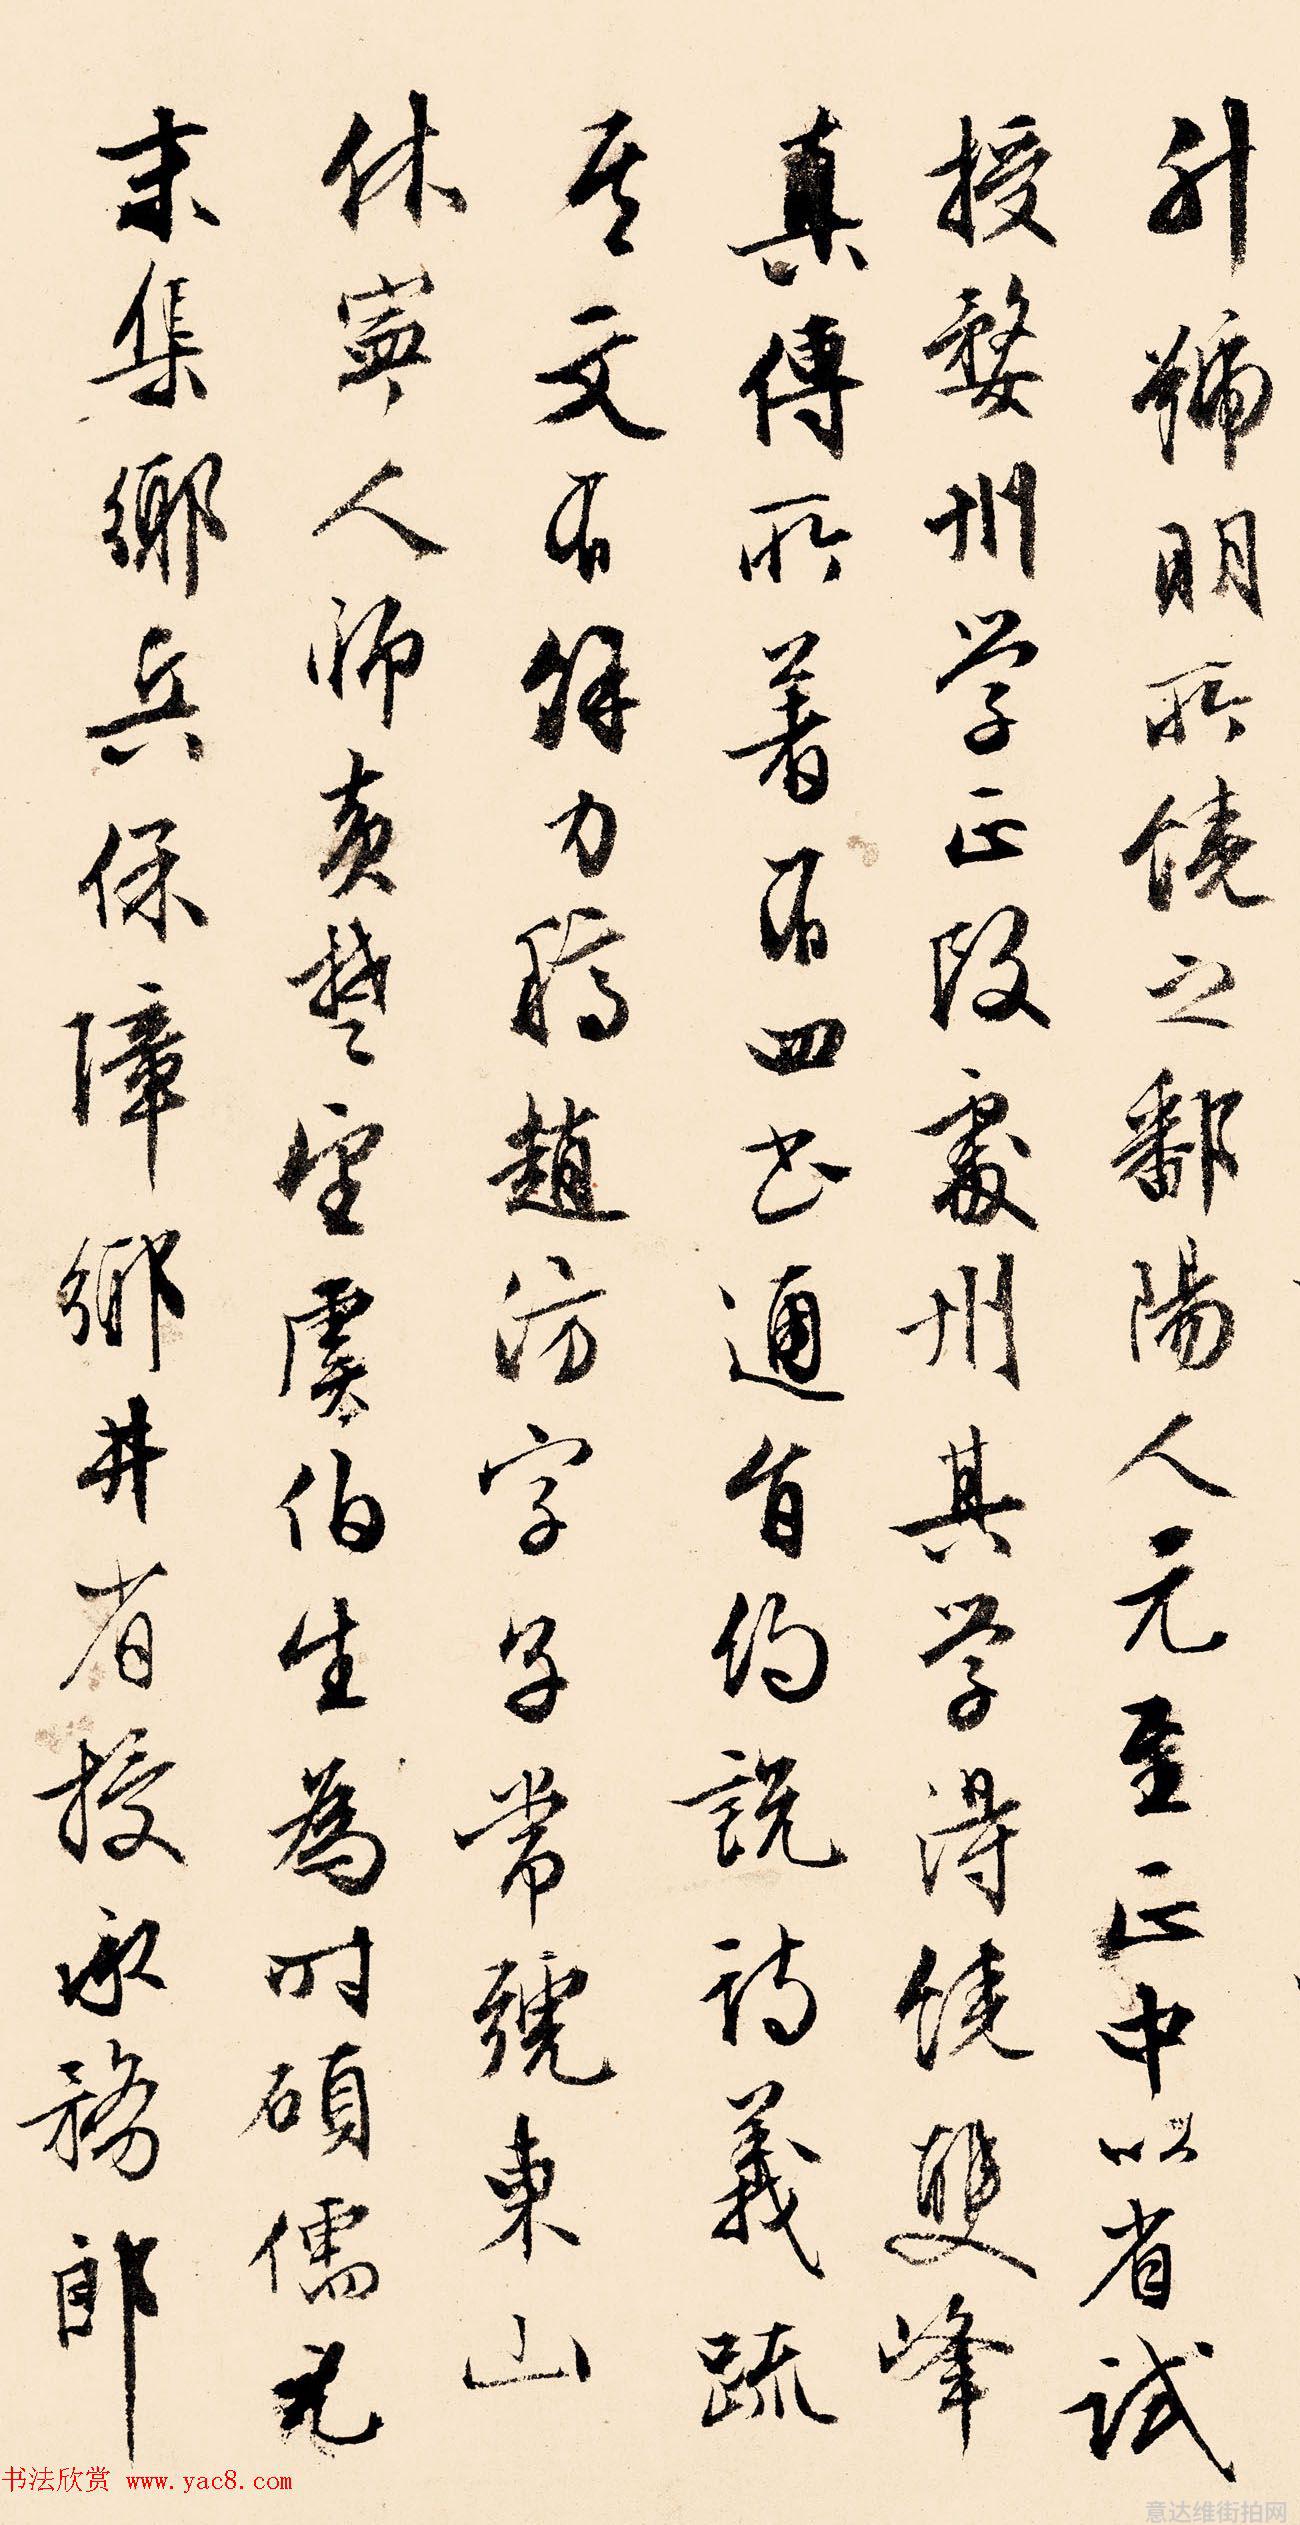 升號明所饒之鄱陽人元至正中以省試
授婺州学正改處州其学得饒雙峰
真傳所著有四书通旨約說詩義疏
其文有餘力稿趙汸字子常號東山
休寧人師黄楚望虞伯生為时碩儒元
末集鄉兵保障鄉井省授承務郎
书法欣赏 www.yac8.com
意达维街拍网